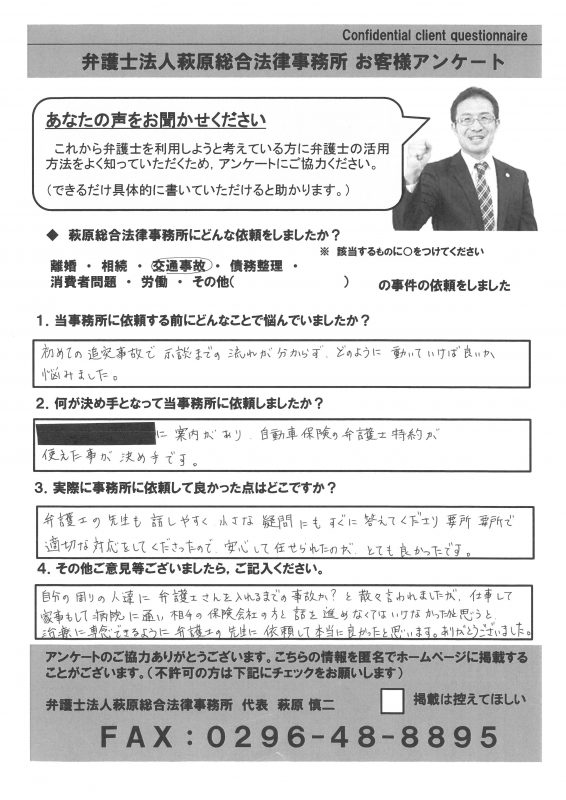 Confidential client questionnaire
弁護士法人萩原総合法律事務所 お客様アンケート
あなたの声をお聞かせください
これから弁護士を利用しようと考えている方に弁護士の活用
方法をよく知っていただくため，アンケートにご協力ください。
（できるだけ具体的に書いていただけると助かります。）
◆ 萩原総合法律事務所にどんな依頼をしましたか？
※ 該当するものに○をつけてください
離婚 ・ 相続 ・ 交通事故 ・ 債務整理 ・
消費者問題 ・ 労働 ・ その他( ) の事件の依頼をしました
１．当事務所に依頼する前にどんなことで悩んでいましたか？
初めての追突事故で示談までの流れが分からず、どのように動いていけば良いか
悩みました。
２．何が決め手となって当事務所に依頼しましたか？
に案内があり、自動車保険の弁護士特約が
使えた事が決め手です。
３．実際に事務所に依頼して良かった点はどこですか？
弁護士の先生も話しやすく小さな疑問にもすぐに答えてくださり要所要所で
適切な対応をしてくださったので、安心して任せられたのが、とても良かったです。
４．その他ご意見等ございましたら、ご記入ください。
自分の周りの人達に弁護士さんを入れるまでの事故か？と散々言われましたが、仕事して
家事もして病院に通い相手の保険会社の方と話を進めなくてはいけなかったと思うと、
治療に専念できるように弁護士の先生に依頼して本当に良かったと思います。ありがとうございました。
アンケートのご協力ありがとうございます。こちらの情報を匿名でホームページに掲載する
ことがございます。（不許可の方は下記にチェックをお願いします）
弁護士法人萩原総合法律事務所 代表 萩原 慎二
掲載は控えてほしい
ＦＡＸ：０２９６-４８-８８９５